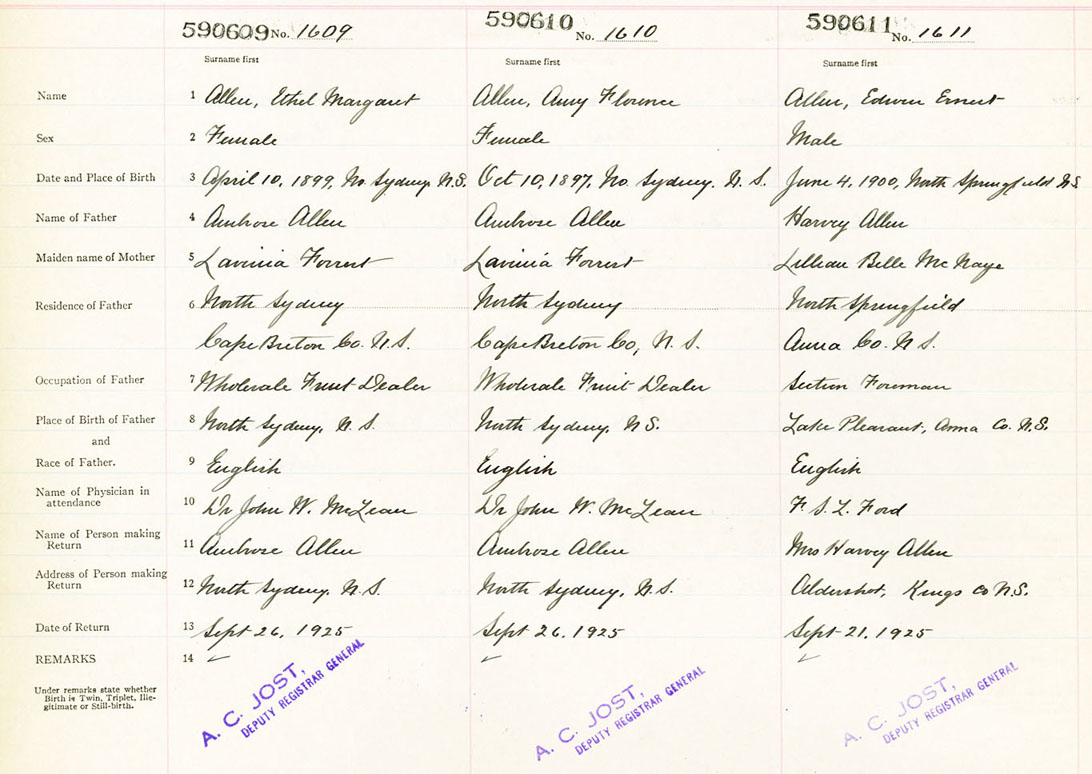 590609 No. 1609 590610 No. 1610 590611 No. 1611
Surname first Surname first Surname first
Name 1 Allen, Ethel Margaret Allen, Amy Florence Allen, Edwin Ernest
Sex 2 Female Female Male
Date and Place of Birth 3 April 10, 1899, No. Sydney, N.S. Oct 10, 1897, No. Sydney. N. S. June 4, 1900, North Springfield N.S.
Name of Father 4 Ambrose Allen Ambrose Allen Harvey Allen
Maiden name of Mother 5 Lavinia Forrest Lavinia Forrest Lillian Belle McNaye
Residence of Father 6 North Sydney North Sydney North Springfield
Cape Breton Co. N.S. Cape Breton Co, N. S. Anna Co. N S.
Occupation of Father 7 Wholesale Fruit Dealer Wholesale Fruit Dealer Section Foreman
Place of Birth of Father 8 North Sydney, N. S. North Sydney, N S. Lake Pleasant, Anna Co. N.S.
and
Race of Father. 9 English English English
Name of Physician in
attendance 10 Dr John W. McLean Dr John W. McLean F S. L. Ford
Name of Person making
Return 11 Ambrose Allen Ambrose Allen Mrs Harvey Allen
Address of Person making
Return 12 North Sydney, N.S. North Sydney, N.S. Aldershot, Kings Co N.S.
Date of Return 13 Sept 26, 1925 Sept 26. 1925 Sept 21. 1925
REMARKS 14 ✓ ✓ ✓
Under remarks state whether
Birth is Twin, Triplet, Ille-
gitimate or Still-birth.
A. C. JOST, A. C. JOST, A. C. JOST,
DEPUTY REGISTRAR GENERAL DEPUTY REGISTRAR GENERAL DEPUTY REGISTRAR GENERAL